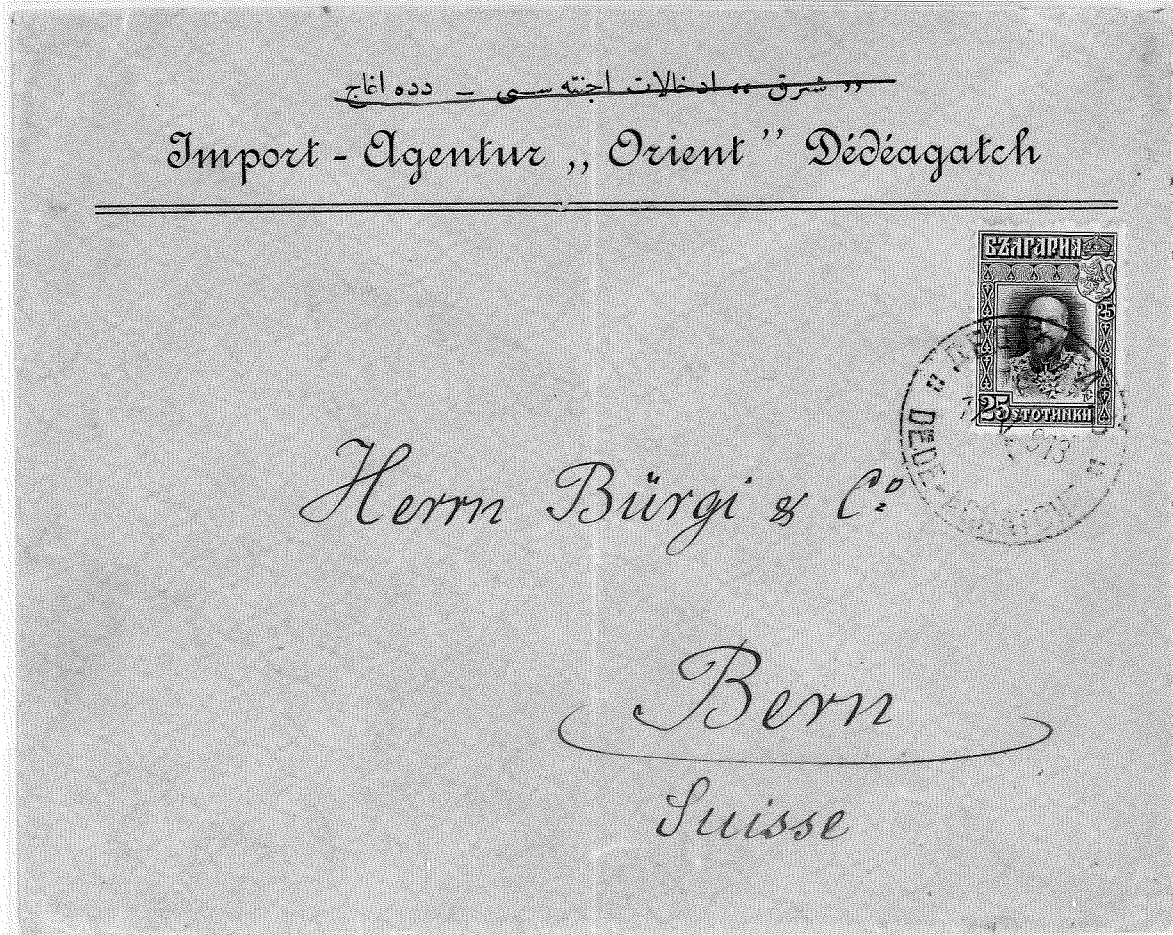 „ شرق „ ادخالات اجنته سی – دده اغاج
Import - Agentur „ Orient " Dédéagatch
БЪЛГАРИЯ
25
25 STOTINKI
DÉDÉ-AGHATCH
Herrn Bürgi & Cº
Bern
Suisse